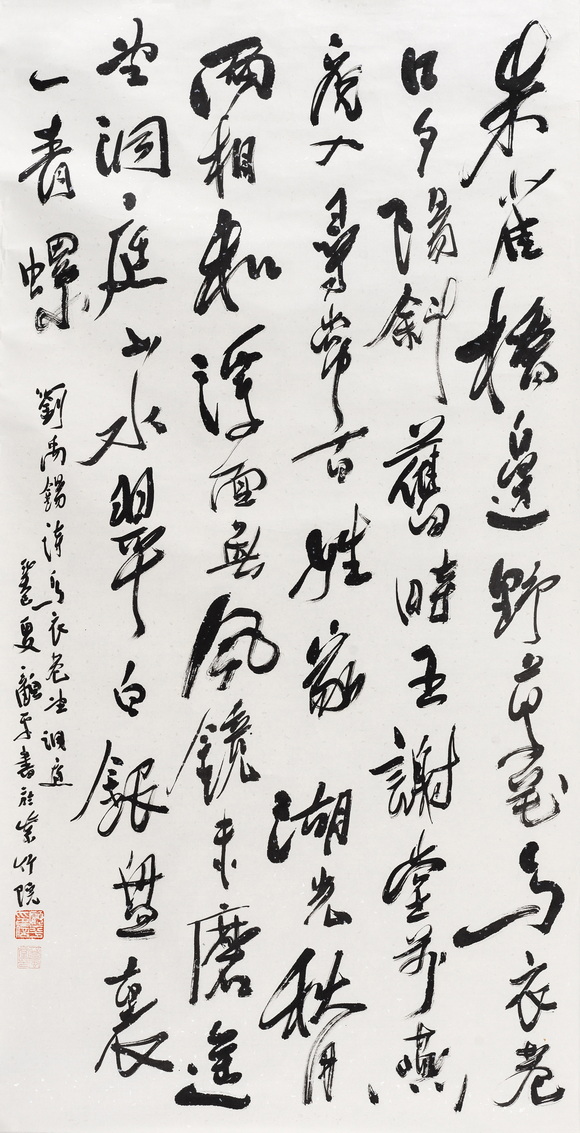 朱雀橋邊野草花烏衣巷
口夕陽斜舊時王謝堂前燕
飛入尋常百姓家 湖光秋月
兩相和潭面無風鏡未磨遙
望洞庭山水翠白銀盤裏
一青螺
劉禹錫詩烏衣巷望洞庭
癸巳夏龢平書於紫竹院